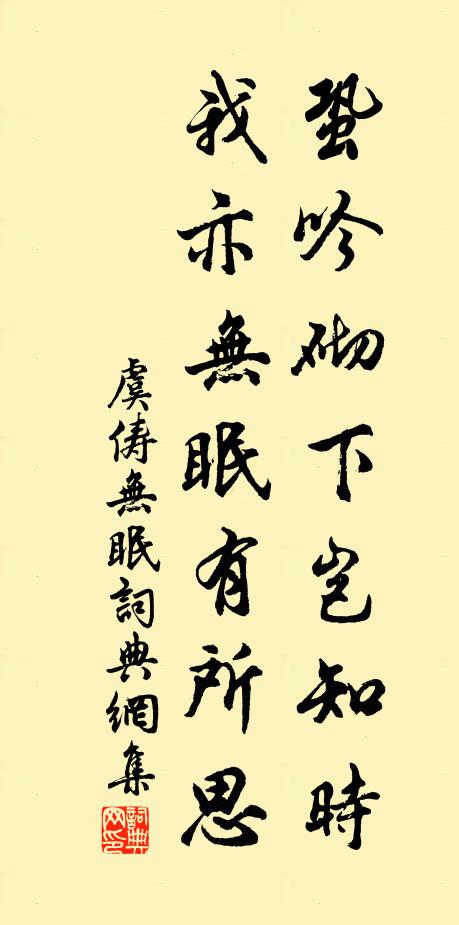 蛩吟砌下岂知時
我亦無眠有所思
虞儔無眠詞典網集
詞典網印